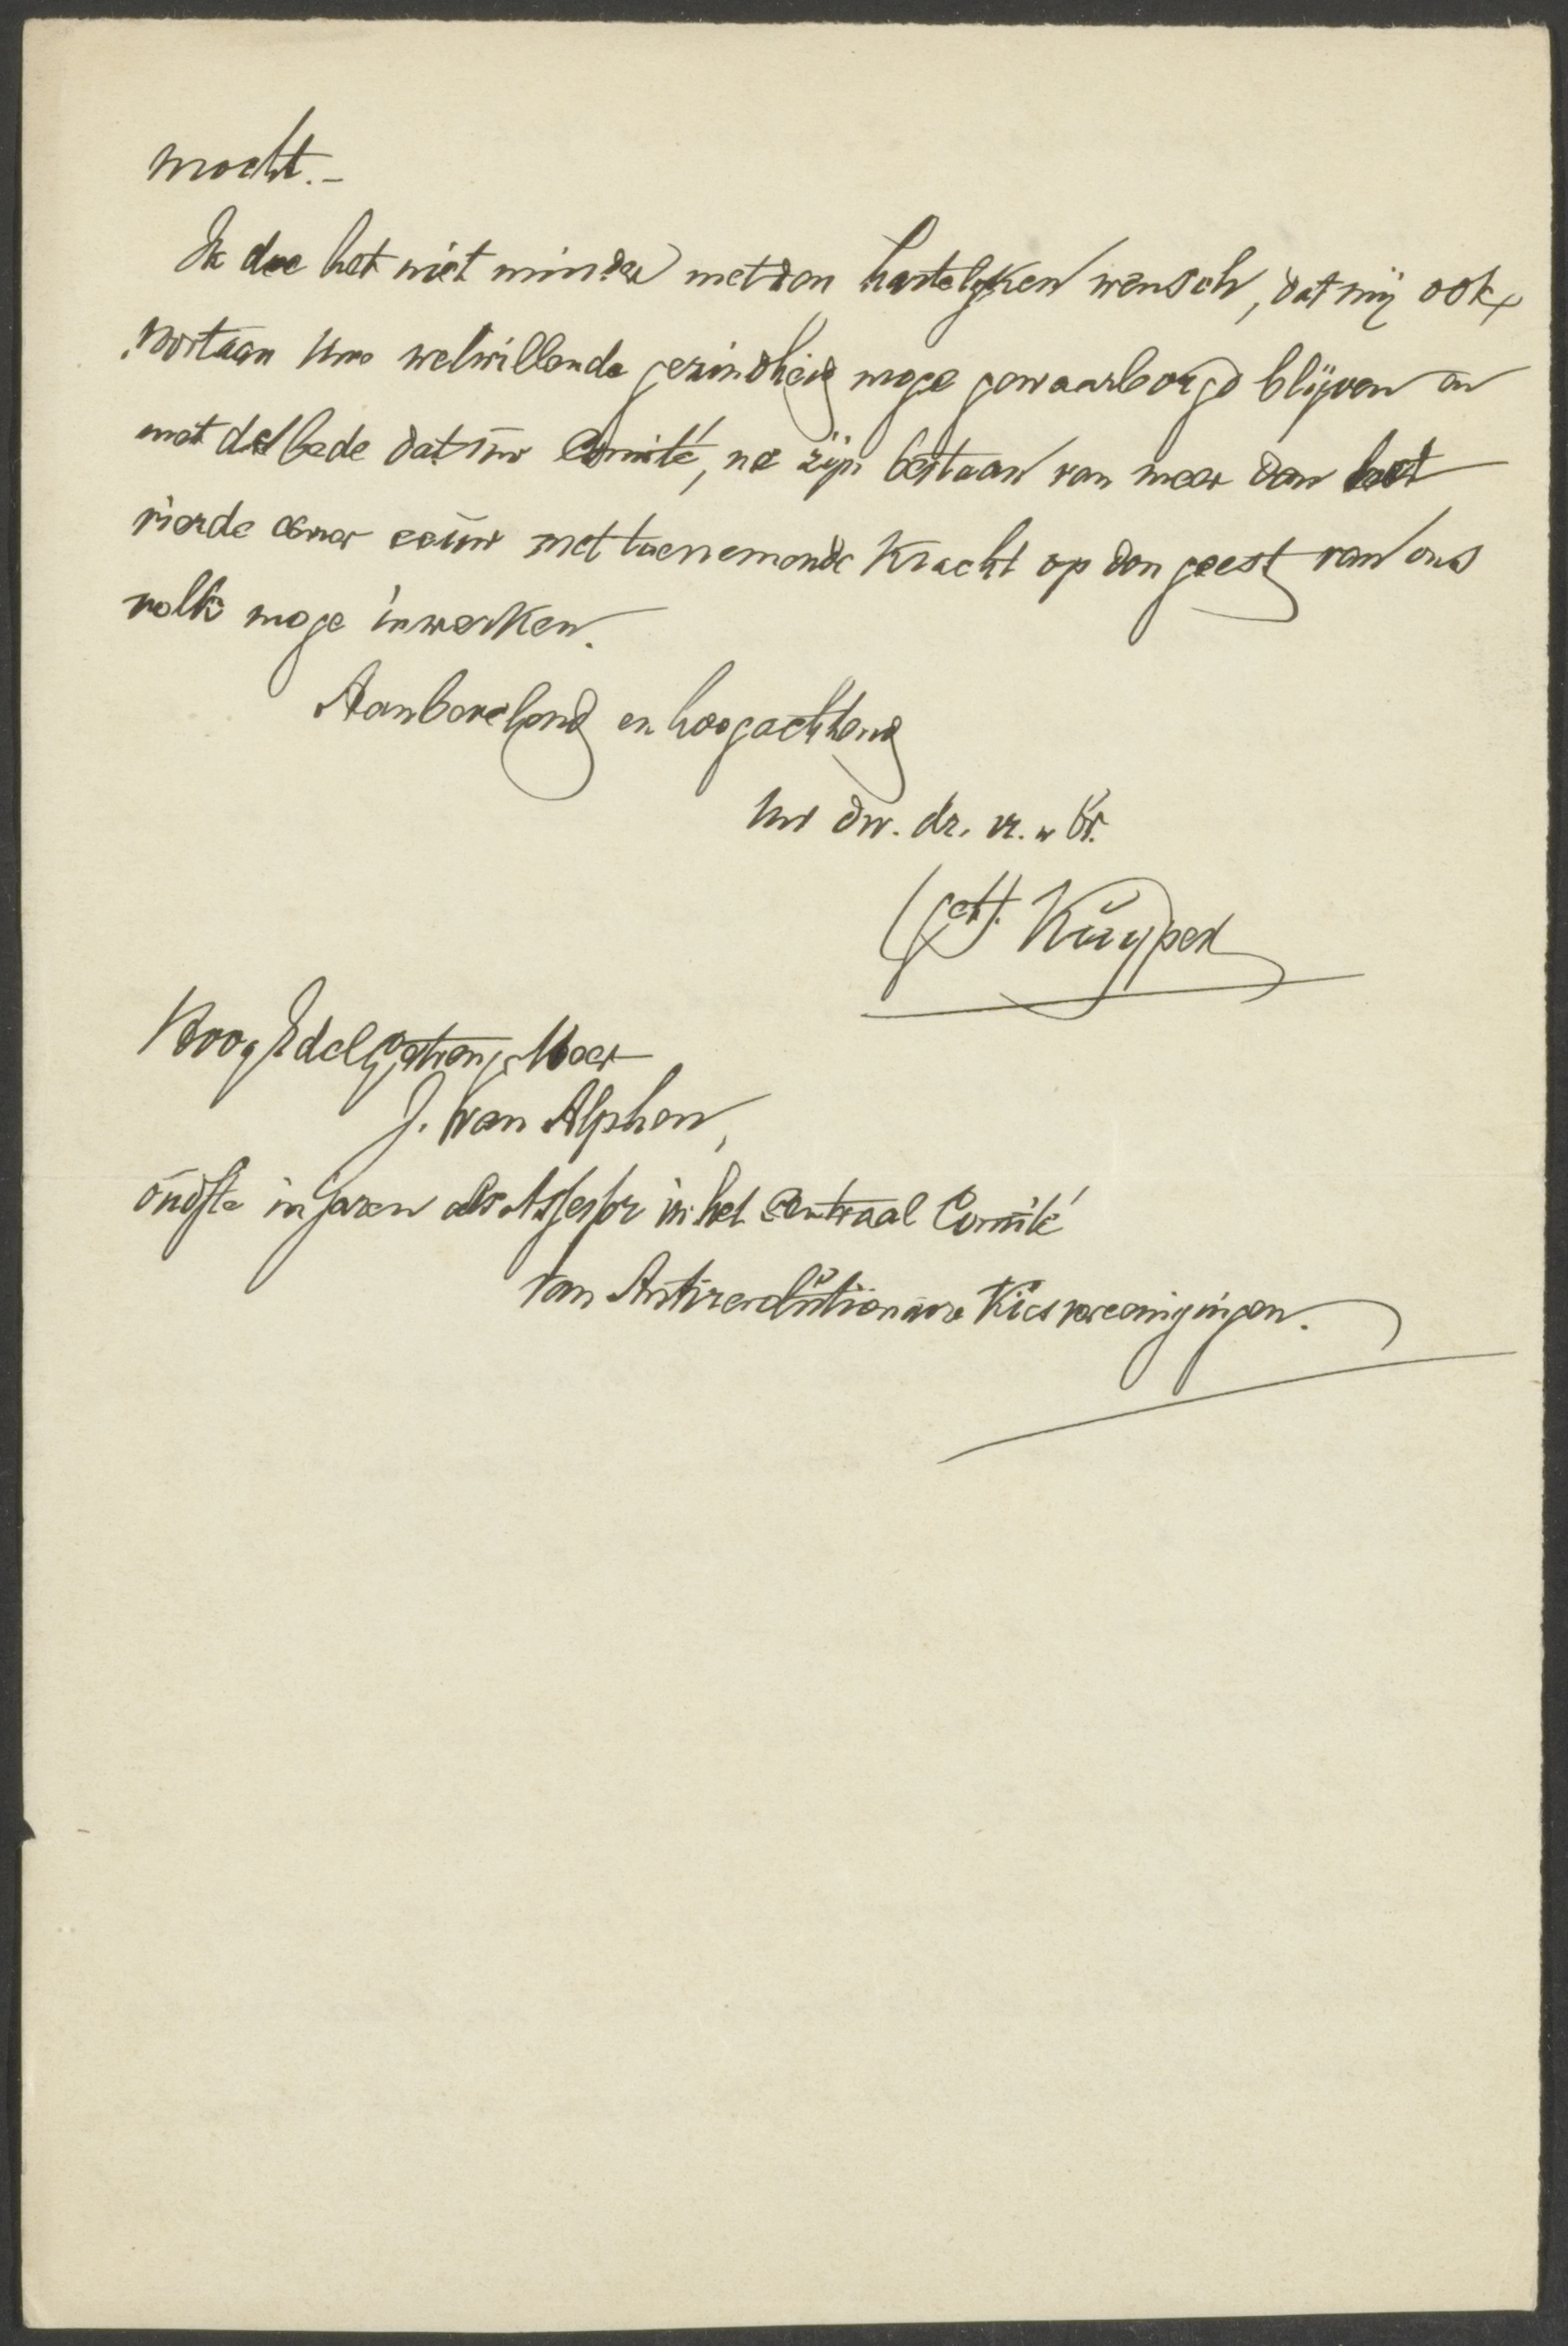 mocht. –
Ik doe het niet minder met den hartelyken wensch, dat mij ook
voortaan Uwe welwillende gezindheid moge gewaarborgd blijven en
met de bede dat uw Comité, na zijn bestaan van meer dan het
vierde eener eeuw met toenemende kracht op den geest van ons
volk moge inwerken.
Aanbevelend en hoogachtend
Uw dw. dr. vr. en br.
(get). Kuyper
HoogEdelGestreng. Heer
J. van Alphen,
oudste in jaren als Assessor in het Centraal Comité
van Antirevolutionaire Kiesvereenigingen.